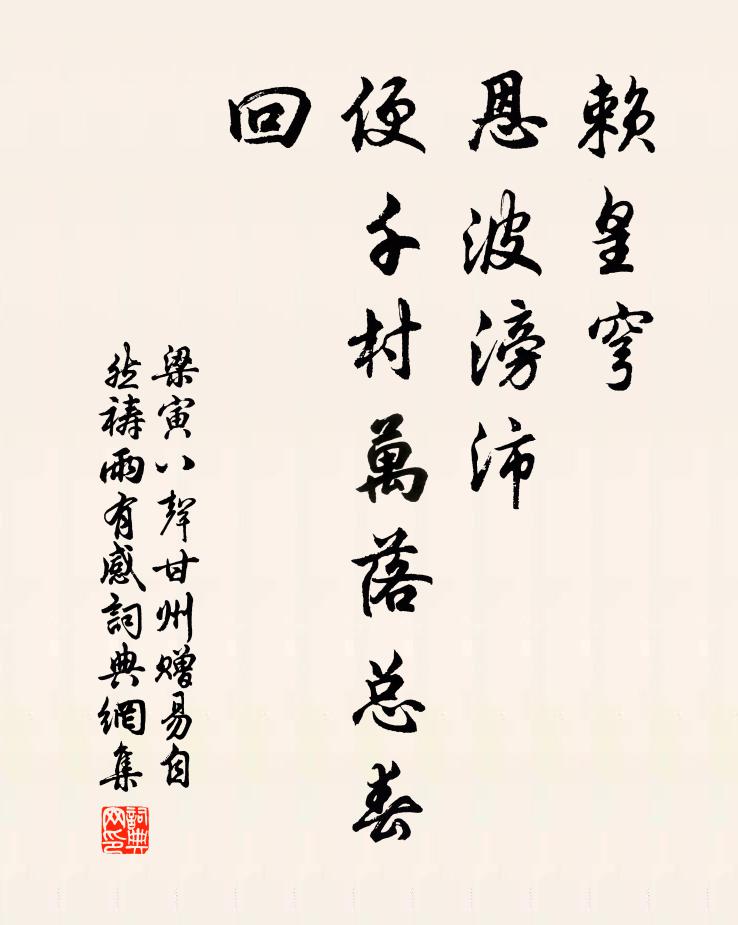 賴皇穹
恩波滂沛
便千村萬落总春
回
梁寅八聲甘州赠易自
然禱雨有感詞典網集
詞典
网印